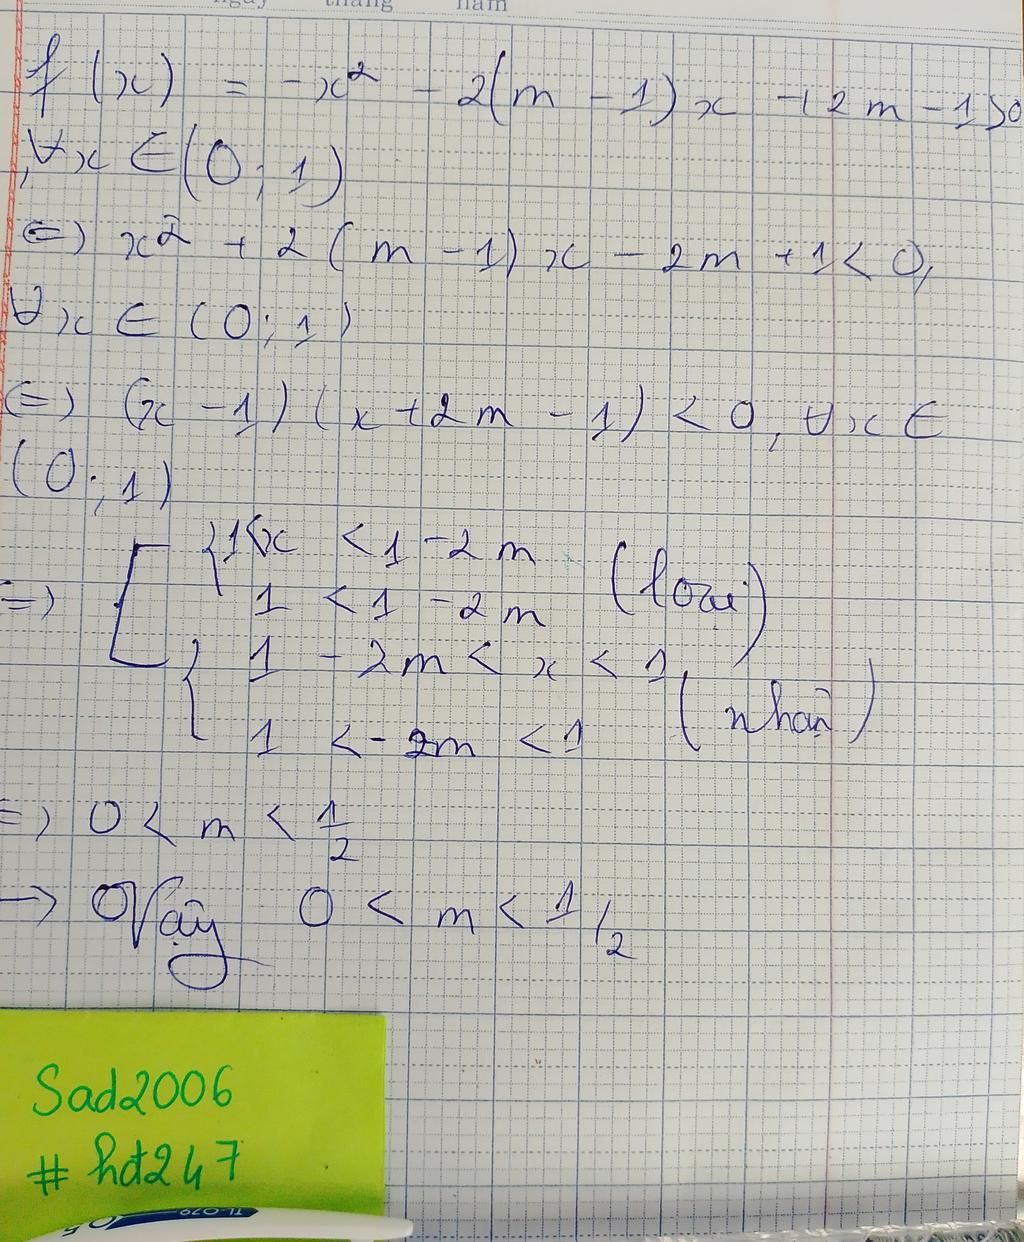 ngày tháng năm
f(x) = -x² - 2(m - 1)x + 2m - 1 > 0
, ∀x ∈ (0; 1)
⇔ x² + 2(m - 1)x - 2m + 1 < 0,
∀x ∈ (0; 1)
⇔ (x - 1)(x + 2m - 1) < 0, ∀x ∈
(0; 1)
⇒ [ { 1 < x < 1 - 2m
1 < 1 - 2m (loại)
{ 1 - 2m < x < 1
1 < - 2m < 1 (nhận)
⇒ 0 < m < 1/2
→ Vậy 0 < m < 1/2
Sad2006
# hđ247
TL-079